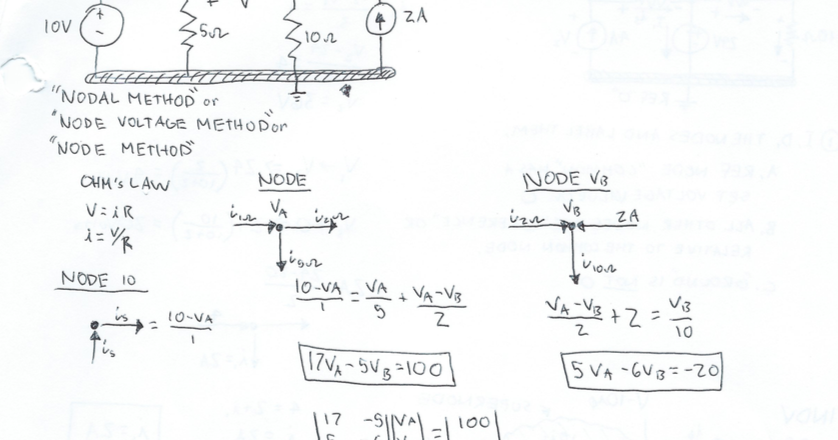 + V
10V
+
-
5Ω
10Ω
2A
"NODAL METHOD" or
"NODE VOLTAGE METHOD" or
"NODE METHOD"
OHM'S LAW
V = iR
i = V/R
NODE
V_A
i_1Ω i_2Ω
i_5Ω
(10-V_A)/1 = V_A/5 + (V_A-V_B)/2
17V_A - 5V_B = 100
NODE V_B
V_B
i_2Ω 2A
i_10Ω
(V_A-V_B)/2 + 2 = V_B/10
5V_A - 6V_B = -20
NODE 10
i_s = (10-V_A)/1
i_s
|17 -5||V_A| = |100|